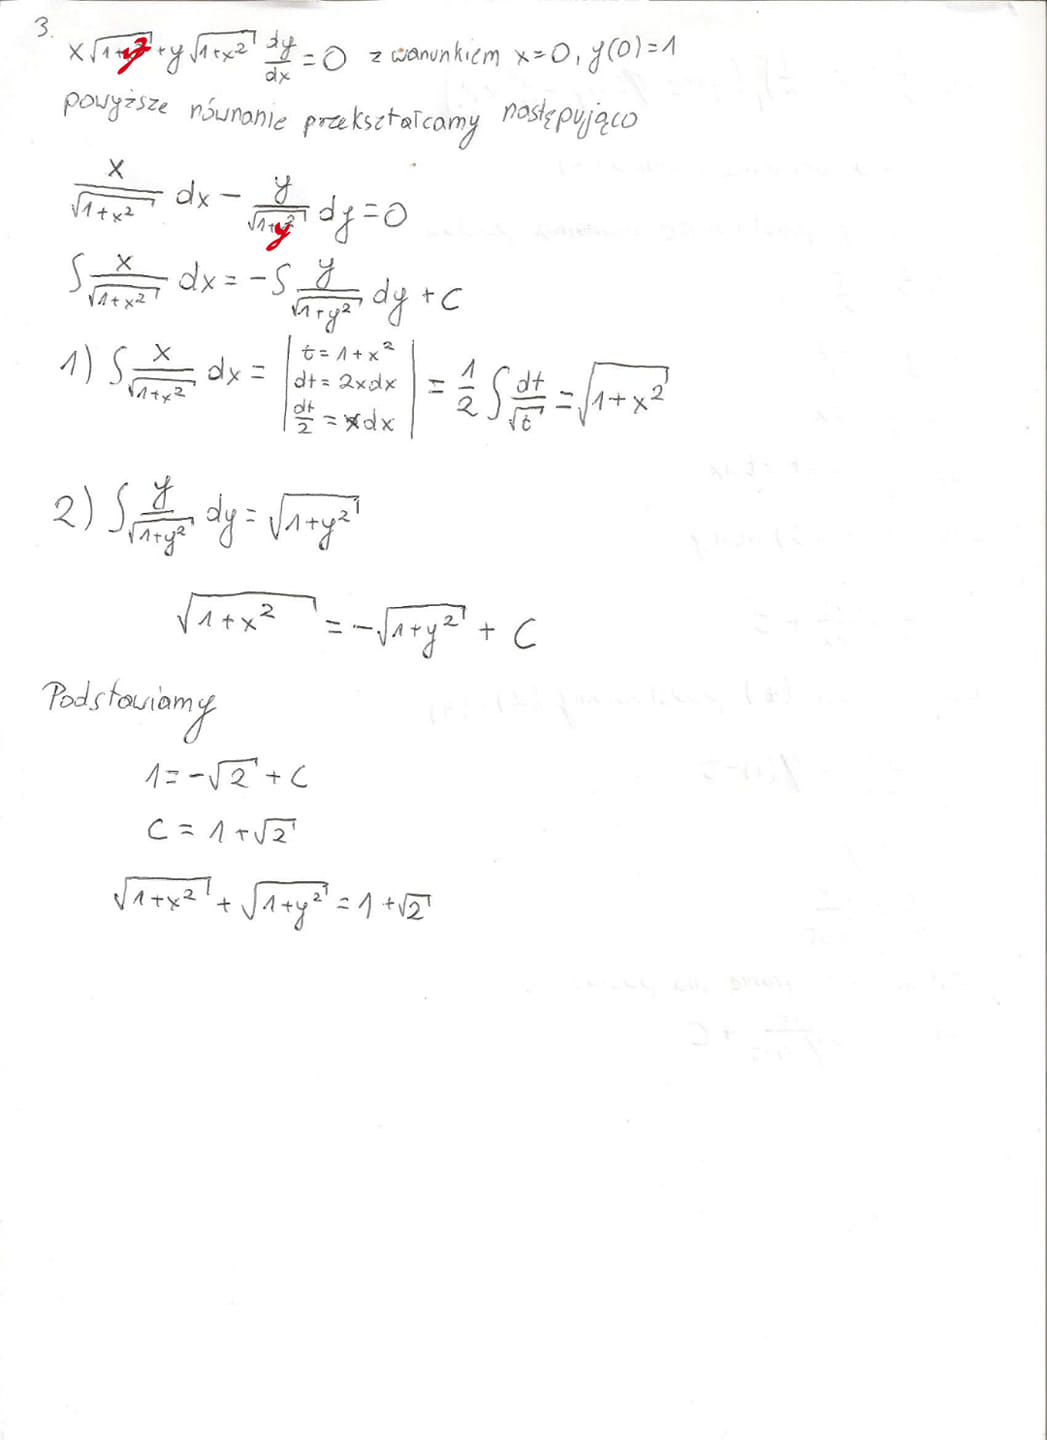 3.
x√(1+y²) + y√(1+x²) dy/dx = 0 z warunkiem x=0, y(0)=1
powyższe równanie przekształcamy następująco
x/√(1+x²) dx - y/√(1+y²) dy = 0
∫ x/√(1+x²) dx = -∫ y/√(1+y²) dy + C
1) ∫ x/√(1+x²) dx = | t=1+x² dt=2xdx dt/2=xdx | = 1/2 ∫ dt/√t = √(1+x²)
2) ∫ y/√(1+y²) dy = √(1+y²)
√(1+x²) = -√(1+y²) + C
Podstawiamy
1 = -√2 + C
C = 1+√2
√(1+x²) + √(1+y²) = 1+√2